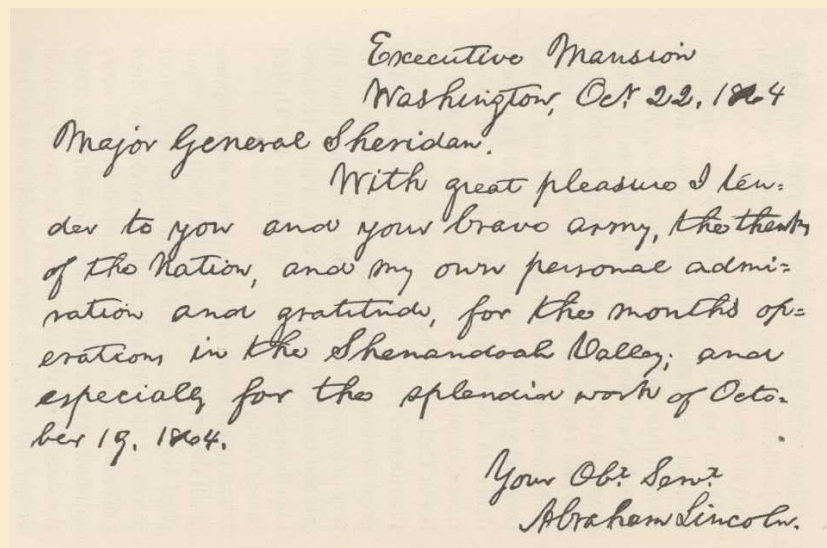 Executive Mansion
Washington, Oct. 22, 1864
Major General Sheridan.
With great pleasure I ten=
der to you and your brave army, the thanks
of the Nation, and my own personal admi=
ration and gratitude, for the months op=
erations in the Shenandoah Valley; and
especially for the splendid work of Octo=
ber 19, 1864.
Your Obt. Servt.
Abraham Lincoln.